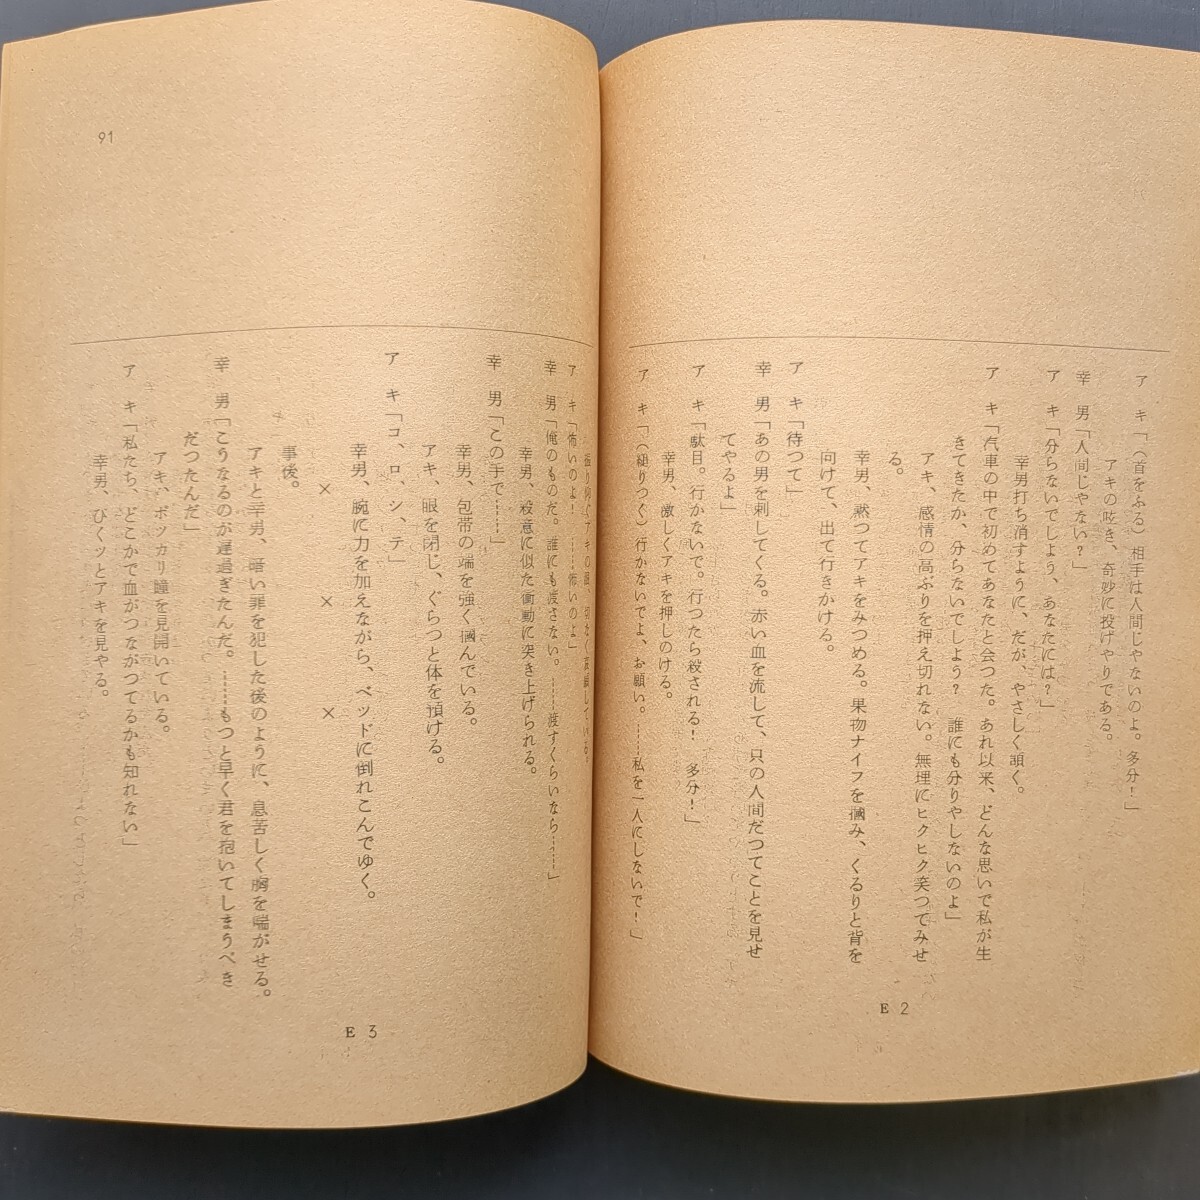 ア　キ「(首をふる)相手は人間じやないのよ。多分！」
アキの呟き、奇妙に投げやりである。
幸　男「人間じゃない？」
ア　キ「分らないでしよう、あなたには？」
幸男打ち消すように、だが、やさしく頷く。
ア　キ「汽車の中で初めてあなたと会つた。あれ以来、どんな思いで私が生
きてきたか、分らないでしよう？　誰にも分りやしないのよ」
アキ、感情の高ぶりを押え切れない。無理にヒクヒク笑つてみせ
る。
幸男、黙つてアキをみつめる。果物ナイフを摑み、くるりと背を
向けて、出て行きかける。
ア　キ「待つて」
幸　男「あの男を刺してくる。赤い血を流して、只の人間だつてことを見せ
てやるよ」
ア　キ「駄目。行かないで。行つたら殺される！　多分！」
幸男、激しくアキを押しのける。
ア　キ「(縋りつく)行かないでよ、お願い。……私を一人にしないで！」
E 2
振り仰ぐアキの顔、切なく哀願している。
ア　キ「怖いのよ！　……怖いのよ」
幸　男「俺のものだ。誰にも渡さない。……渡すくらいなら……」
幸男、殺意に似た衝動に突き上げられる。
幸　男「この手で……」
幸男、包帯の端を強く摑んでいる。
アキ、眼を閉じ、ぐらつと体を預ける。
ア　キ「コ、ロ、シ、テ」
幸男、腕に力を加えながら、ベッドに倒れこんでゆく。
×　×　×
事後。
アキと幸男、暗い罪を犯した後のように、息苦しく胸を喘がせる。
幸　男「こうなるのが遅過ぎたんだ。……もつと早く君を抱いてしまうべき
だつたんだ」
アキ、ポツカリ瞳を見開いている。
ア　キ「私たち、どこかで血がつながつてるかも知れない」
幸男、びくッとアキを見やる。
E 3
91